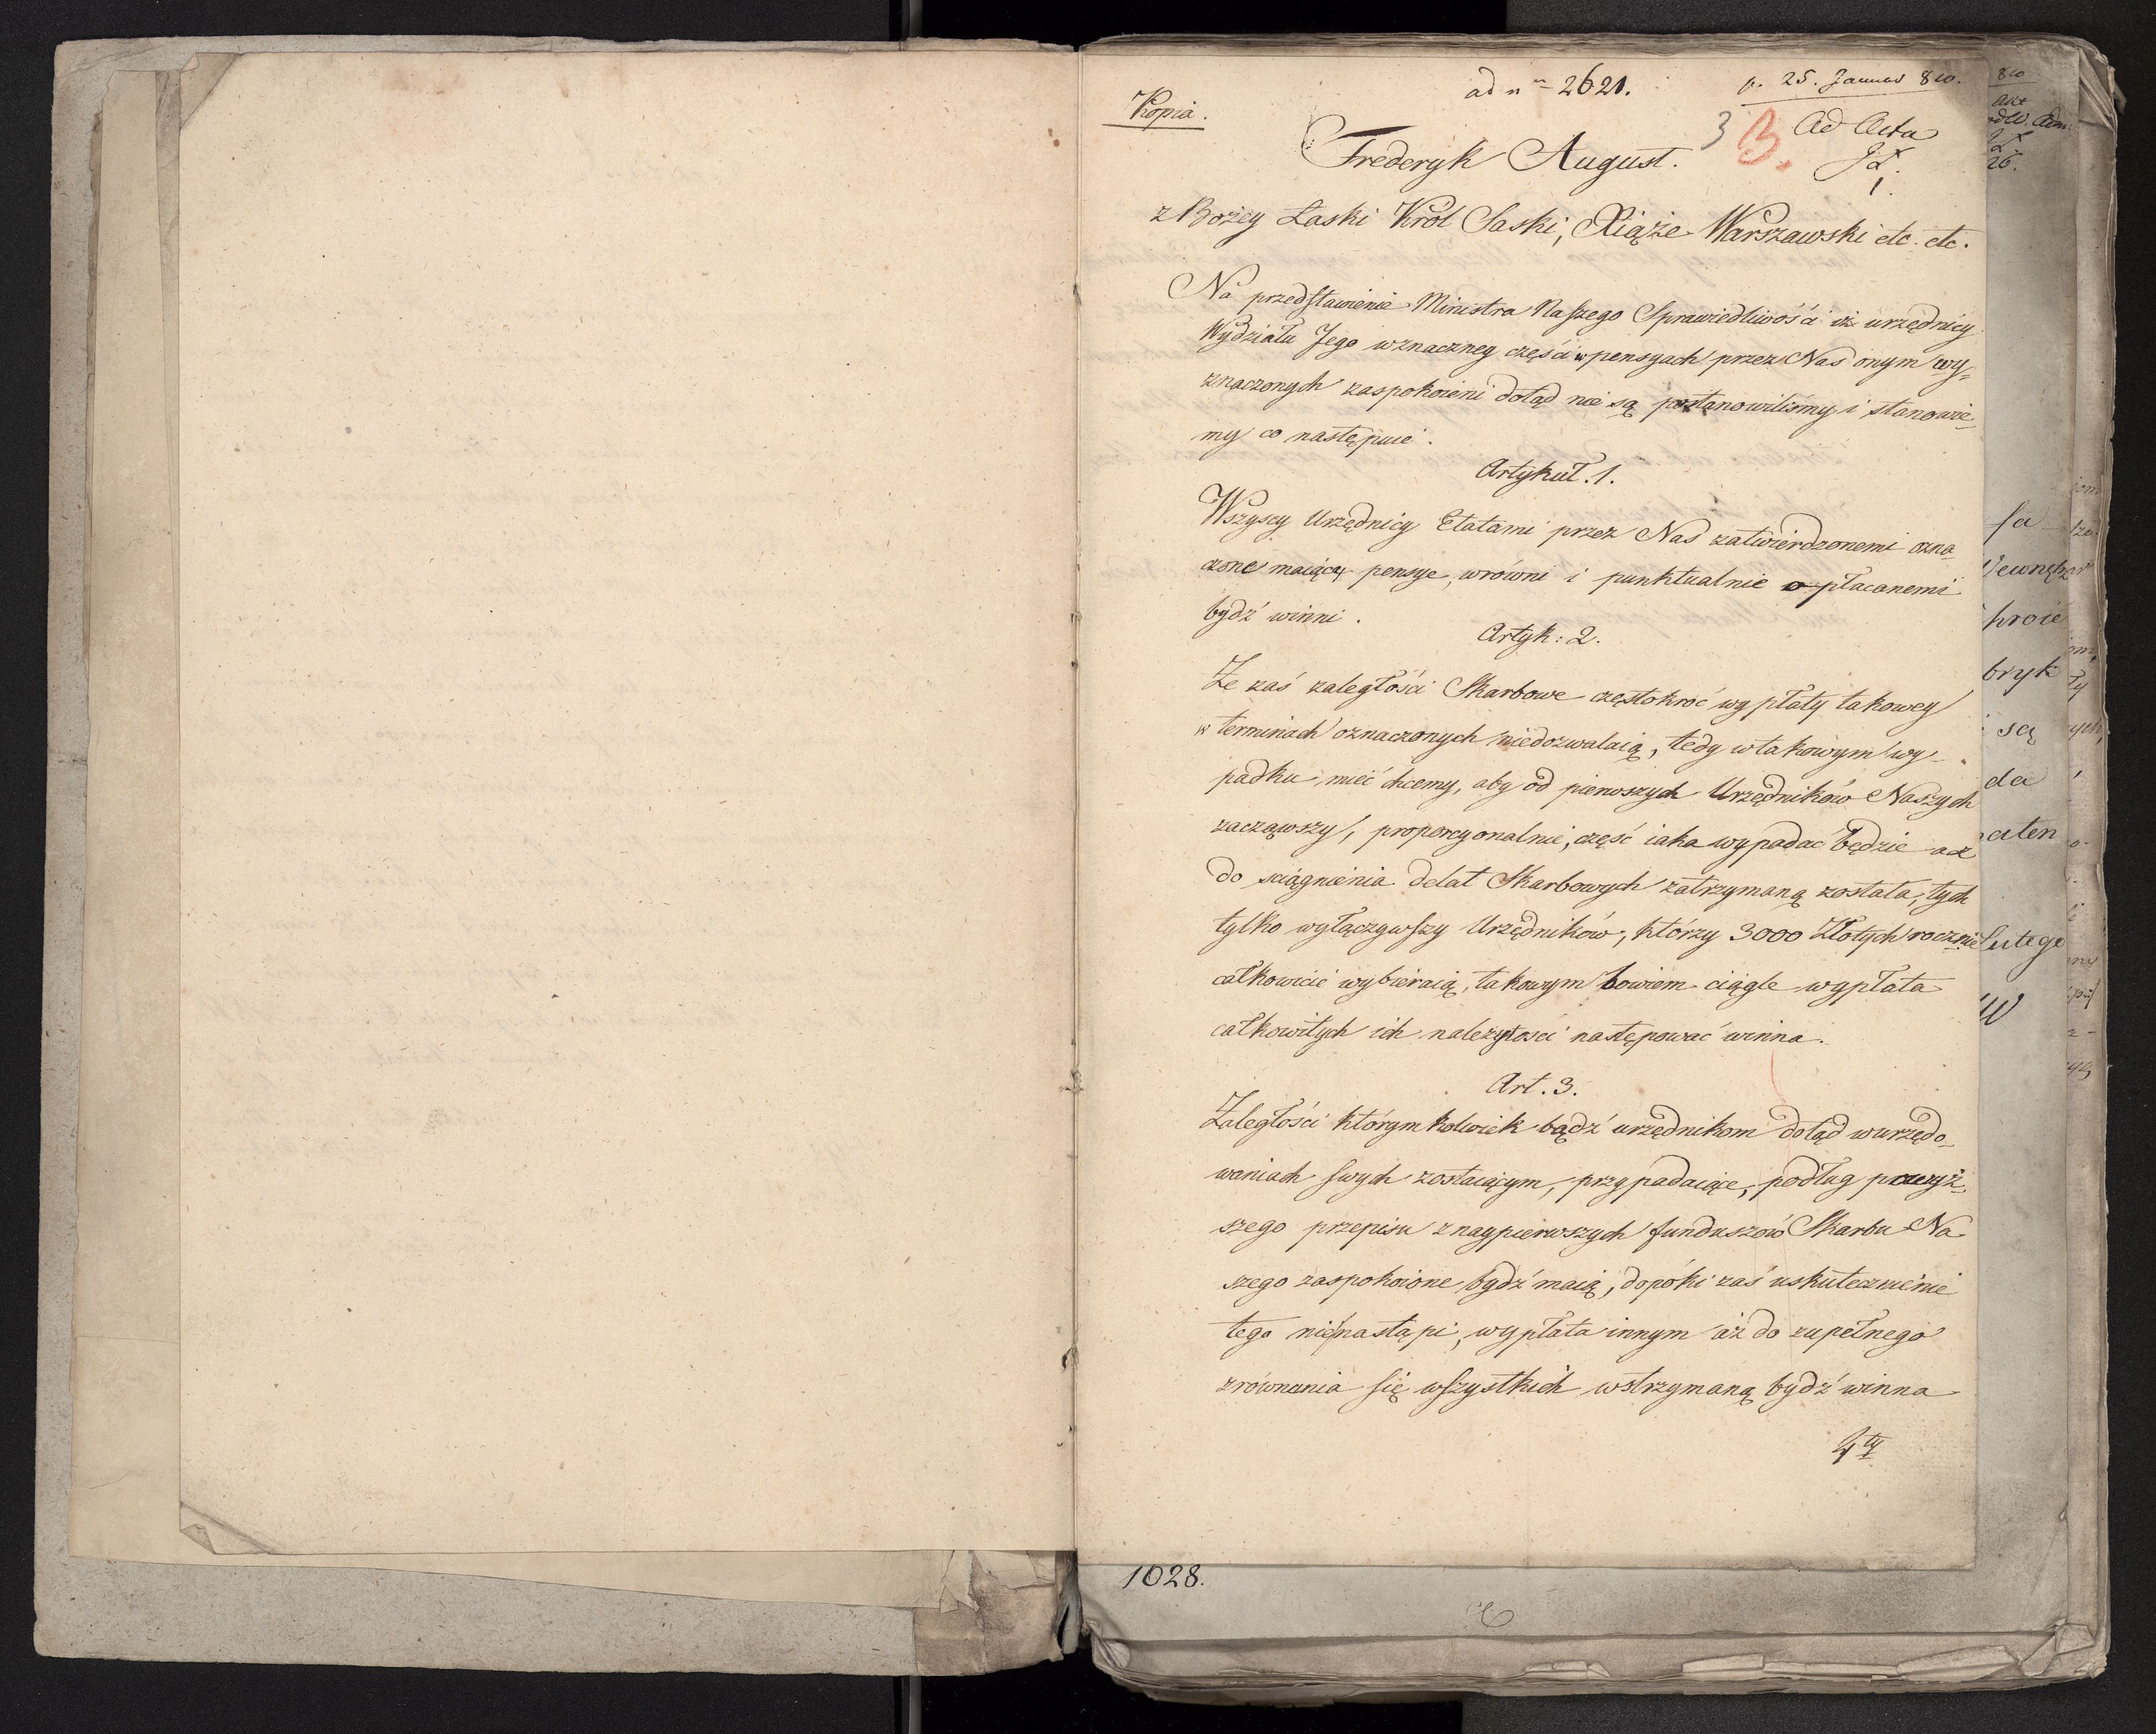 Kopia.
ad n 2621.
25. Januar 810.
3 B.
Ad Acta
1.
Frederyk August.
z Bożey Łaski Król Saski, Xiąże Warszawski etc. etc.
Na przedstawienie Ministra Naszego Sprawiedliwości iż urzędnicy
Wydziału Jego wznaczney części w pensyach przez Nas onym wy-
znaczonych zaspokoieni dotąd nie są postanowiliśmy i stanowie-
my co następuie.
Artykuł. 1.
Wszyscy Urzędnicy Etatami przez Nas zatwierdzonemi ozna-
czone maiący pensye, wrówni i punktualnie płacanemi
bydź winni.
Artyk: 2.
Że zaś zaległości Skarbowe częstokroć wypłaty takowey
w terminach oznaczonych niedozwalaią, tedy wtakowym wy-
padku mieć chcemy, aby od pierwszych Urzędników Naszych
zacząwszy, proporcyonalnie, część iaka wypadać będzie aż
do sciągnienia delat Skarbowych zatrzymaną została, tych
tylko wyłączywszy Urzędników, którzy 3000 Złotych rocznie
całkowicie wybieraią, takowym bowiem ciągle wypłata
całkowitych ich należytości następować winna.
Art. 3.
Zaległości którymkolwiek bądź urzędnikom dotąd wurzędo-
waniach swych zostaiącym, przypadaiące, podług powyż-
szego przepisu znaypierwszych funduszów Skarbu Na
szego zaspokoione bydź maią, dopóki zaś uskutecznienie
tego nie nastąpi, wypłata innym aż do zupełnego
zrównania się wszystkich wstrzymaną bydź winna
4ty
1028.
810
26.
sa
proie
bryk
są
da
aten
Lutego
W